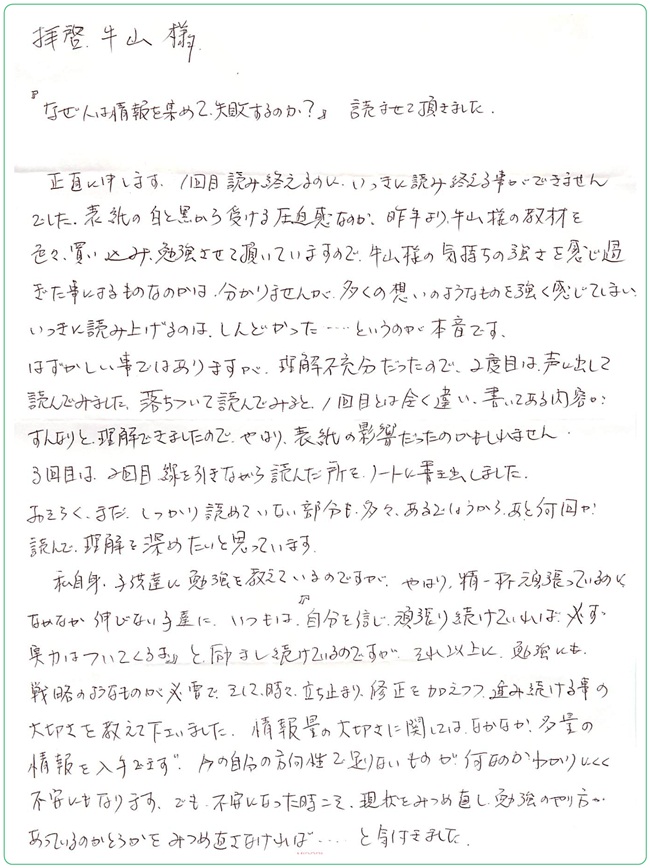 拝啓、牛山様
『なぜ人は情報を集めて失敗するのか?』 読ませて頂きました.
正直に申します. 1回目読み終えるのに、いっきに読み終える事ができません
でした. 表紙の白と黒から受ける圧迫感なのか、昨年より、牛山様の教材を
色々、買い込み、勉強させて頂いていますので、牛山様の気持ちの強さを感じ過
ぎた事によるものなのかは、分かりませんが、多くの想いのようなものを強く感じてしまい、
いっきに読み上げるのは、しんどかった……というのが本音です、
はずかしい事ではありますが、理解不充分だったので、2度目は、声に出して
読んでみました、落ちついて読んでみると、1回目とは全く違い、書いてある内容が
すんなりと、理解できましたので、やはり、表紙の影響だったのかもしれません.
3回目は、2回目線を引きながら読んだ所を、ノートに書き出しました.
おそらく、まだ、しっかり読めていない部分も、多々、あるでしょうから、あと何回か
読んで、理解を深めたいと思っています.
私自身、子供達に勉強を教えているのですが、やはり、精一杯頑張っているのに
なかなか伸びない子達に、いつもは、『自分を信じ、頑張り続けていれば、必ず
実力はついてくるよ』と、励まし続けているのですが、それ以上に、勉強にも、
戦略のようなものが必要で、そして、時々、立ち止まり、修正を加えつつ、進み続ける事の
大切さを教えて下さいました. 情報量の大切さに関しては、なかなか、多量の
情報を入手できず、今の自分の方向性で足りないものが、何なのかわかりにくく
不安にもなります. でも、不安になった時こそ、現状をみつめ直し、勉強のやり方が
あっているのかどうかをみつめ直さなければ…… と気付きました.